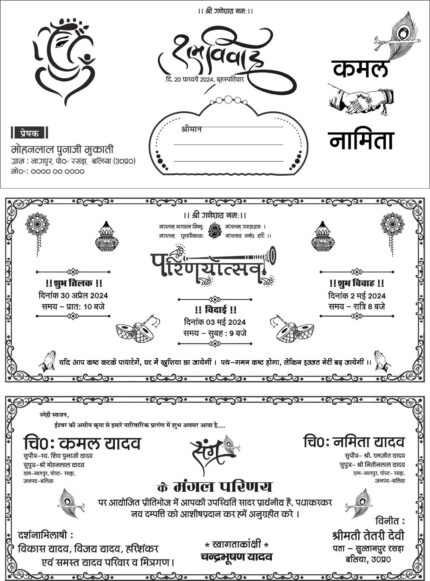 ।। श्री गणेशाय नमः ।।
शुभविवाह
दि. 20 फरवरी 2024, बृहस्पतिवार
कमल
नामिता
श्रीमान
प्रेषक
मोहनलाल पुनाजी मुकाती
ग्राम : नागपुर, पो०- रसड़ा, बलिया (उ०प्र०)
मो०-: ०००० ०० ००००
।। श्री गणेशाय नमः ।।
मंगलम् भगवान विष्णु मंगलम् गरुड़ध्वजः ।
मंगलम् पुण्डरीकाक्षः मंगलाय तनो हरिः ।।
परिणयोत्सव
!! शुभ तिलक !!
दिनांक 30 अप्रेल 2024
समय – प्रात: 10 बजे
!! विदाई !!
दिनांक 03 मई 2024
समय – सुबह : 9 बजे
!! शुभ विवाह !!
दिनांक 2 मई 2024
समय – रात्रि 8 बजे
यदि आप कष्ट करके पधारेगें, घर में खुशिया छा जायेगी । पथ-गमन कष्ट होगा, लेकिन इज्जत मेरी बढ़ जायेगी ।।
स्नेही स्वजन,
ईश्वर की असीम कृपा से हमारे पारिवारिक प्रांगण में शुभ अवसर आया है....
चि०: कमल यादव
सुपौत्र-स्व. शिव पुनाजी यादव
सुपुत्र-श्री मोहनलाल यादव
ग्राम-नागपुर, पोस्ट- रसड़ा,
जनपद-बलिया
संग
चि०: नमिता यादव
सुपौत्र- श्री. रामजीत यादव
सुपुत्र- श्री नितीनलाल यादव
ग्राम-नागपुर, पोस्ट- रसड़ा,
जनपद-बलिया
के मंगल परिणय
पर आयोजित प्रीतिभोज में आपकी उपस्थिति सादर प्रार्थनीय है, पधारकर
नव दम्पति को आशीषप्रदान कर हमें अनुग्रहीत करे ।
दर्शनाभिलाषी :
विकास यादव, विजय यादव, हरिशंकर
एवं समस्त यादव परिवार व मित्रगण ।
* स्वागताकांक्षी *
चन्द्रभूषण यादव
विनीत :
श्रीमती तेतरी देवी
पता – सुल्तानपुर रसड़ा
बलिया, उ०प्र०